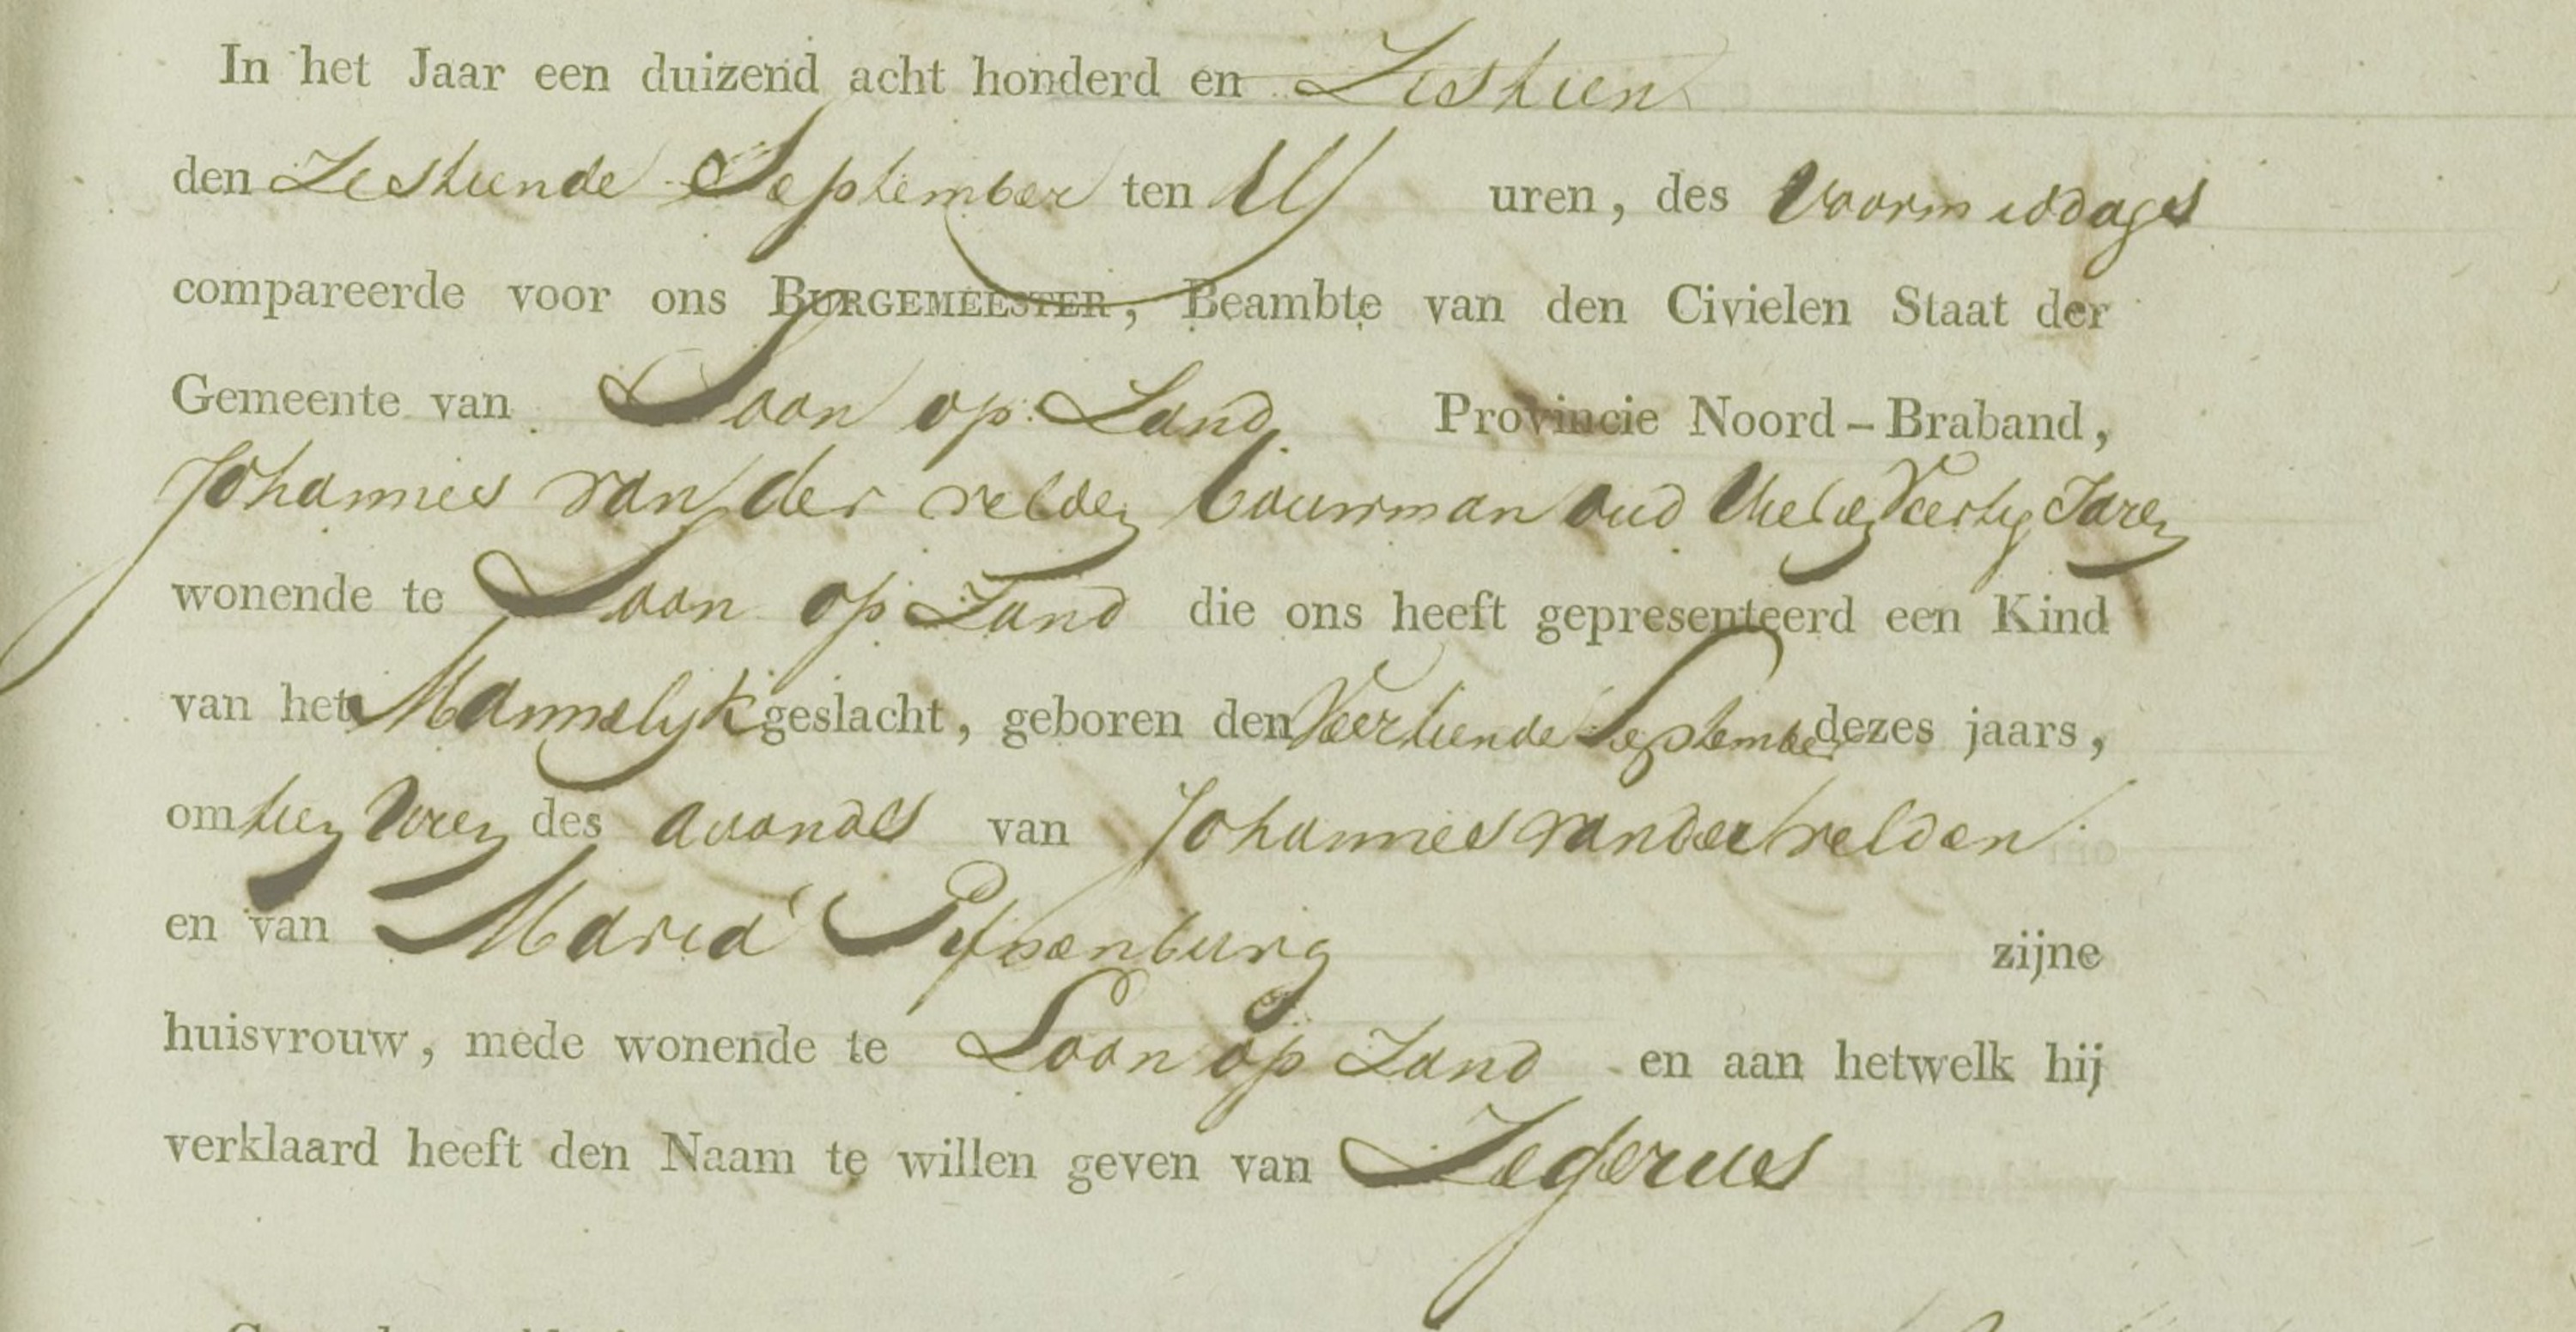 In het Jaar een duizend acht honderd en Zestien
den Zestiende September ten Elf uren, des Voormiddags
compareerde voor ons BURGEMEESTER, Beambte van den Civielen Staat der
Gemeente van Loon op Zand Provincie Noord-Braband,
Johannes van der velden bouwman oud Veertig Jaren
wonende te Loon op Zand die ons heeft gepresenteerd een Kind
van het Mannelijk geslacht, geboren den Veertiende September dezes jaars,
om tien Uren des avonds van Johannes van der velden
en van Maria zijne
huisvrouw, mede wonende te Loon op Zand en aan hetwelk hij
verklaard heeft den Naam te willen geven van Zegerus